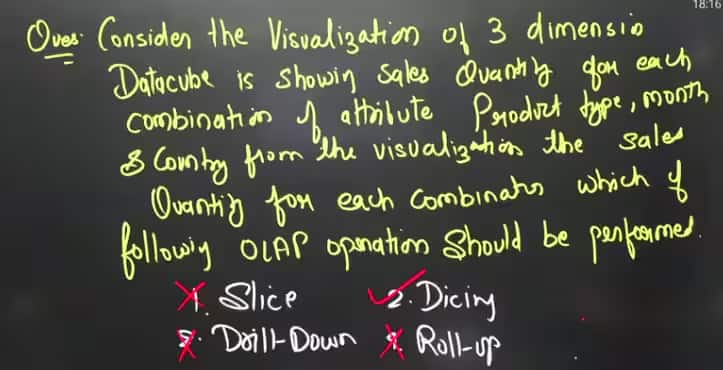 18:16
Ques. Consider the Visualization of 3 dimensio
Datacube is showing Sales Quantity for each
combination of attribute Product type, month
& Country from the visualization the sales
Quantity for each combination which of
following OLAP operation Should be performed.
1. Slice 2. Dicing
3. Drill-Down 4. Roll-up